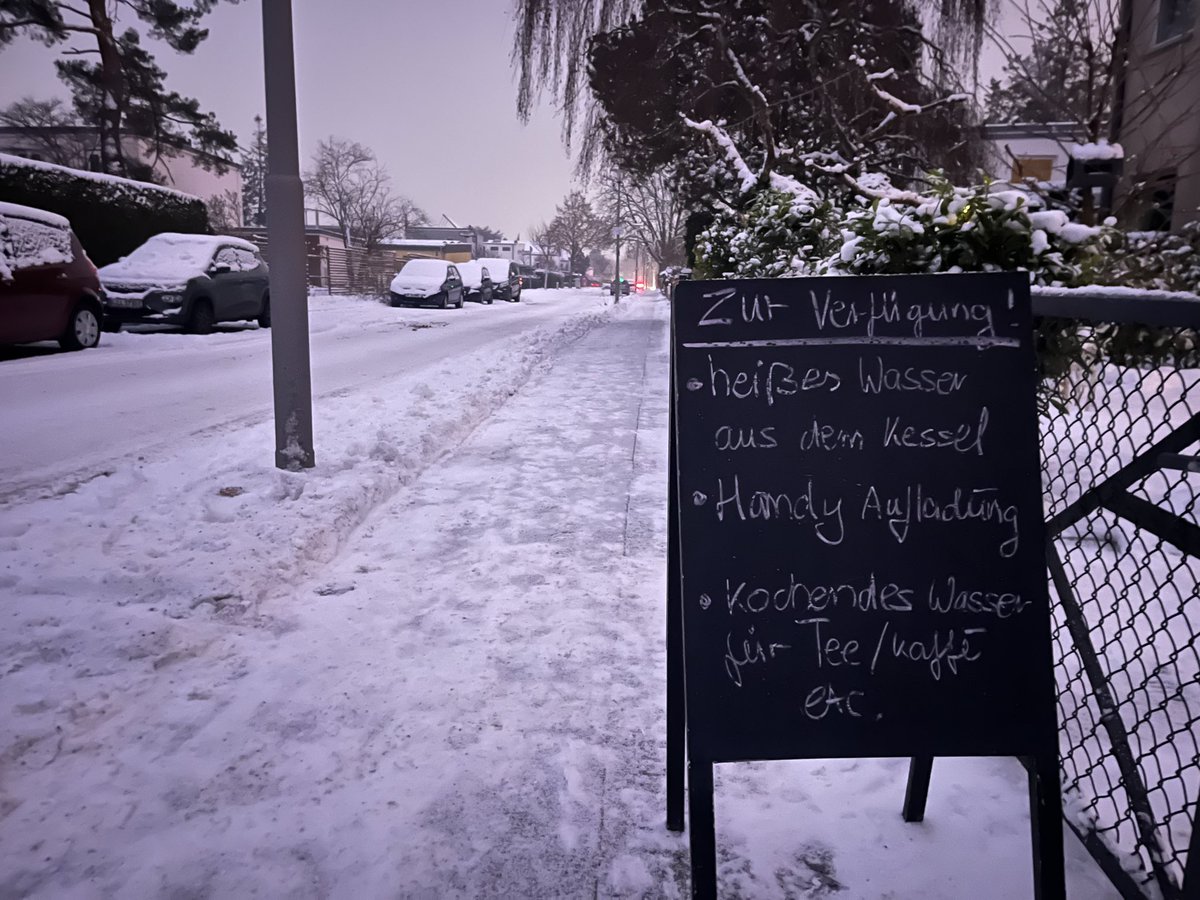 Zur Verfügung!
• heißes Wasser
aus dem Kessel
• Handy Aufladung
• Kochendes Wasser
für Tee/Kaffe
etc.